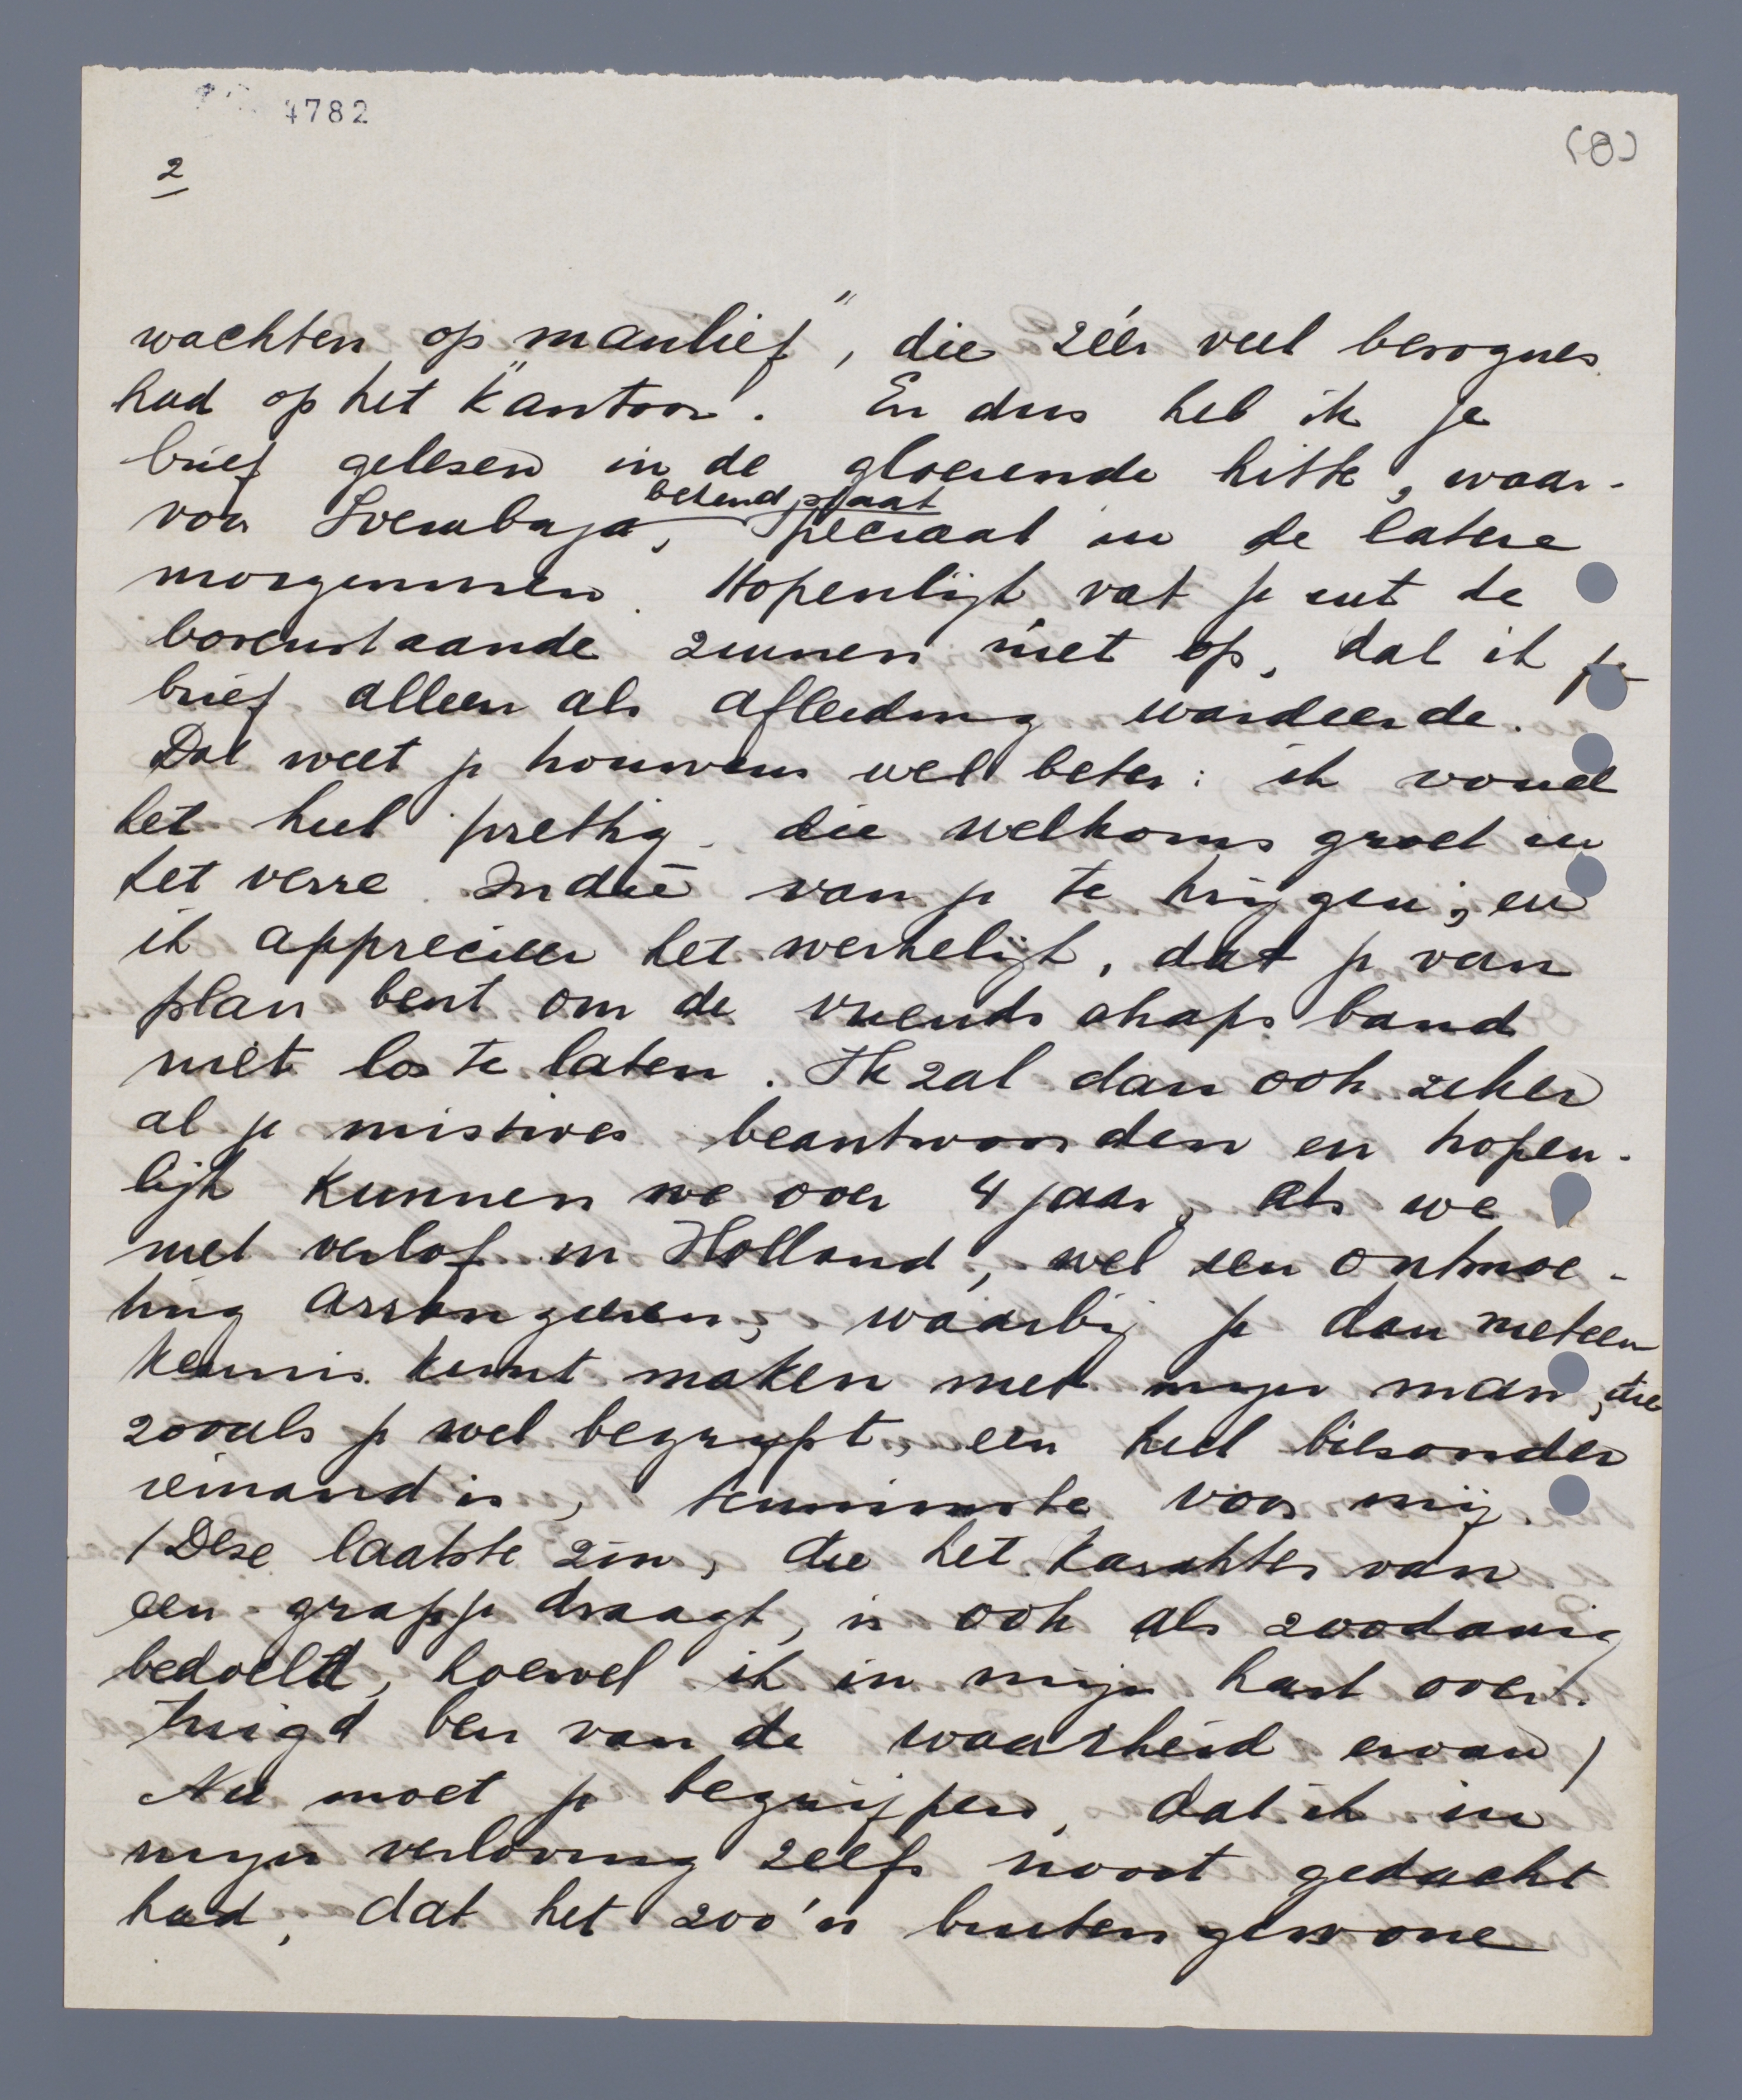 4782
(8)
2
wachten op „manlief”, die zéér veel besognes
had op het kantoor. En dus heb ik je
brief gelezen in de gloeiende hitte, waar-
voor Soerabaja bekend staat, speciaal in de latere
morgenuren. Hopenlijk vat je uit de
bovenstaande zinnen niet op, dat ik je
brief alleen als afleiding waardeerde.
Dat weet je trouwens wel beter: ik vond
het heel prettig die welkoms groet in
het verre Indië van je te krijgen; en
ik apprecieer het werkelijk, dat je van
plan bent om de vriendschaps band
niet los te laten. Ik zal dan ook zeker
al je missives beantwoorden en hopen-
lijk kunnen we over 4 jaar, als we
met verlof in Holland, wel een ontmoe-
ting arrangeeren, waarbij je dan meteen
kennis kunt maken met mijn man, die
zooals je wel begrijpt, een heel bizonder
iemand is, tenminste voor mij.
(Deze laatste zin, die het karakter van
een grapje draagt, is ook als zoodanig
bedoeld, hoewel ik in mijn hart over-
tuigd ben van de waarheid ervan)
Nu moet je begrijpen, dat ik in
mijn verloving zelfs nooit gedacht
had, dat het zoo'n buitengewone